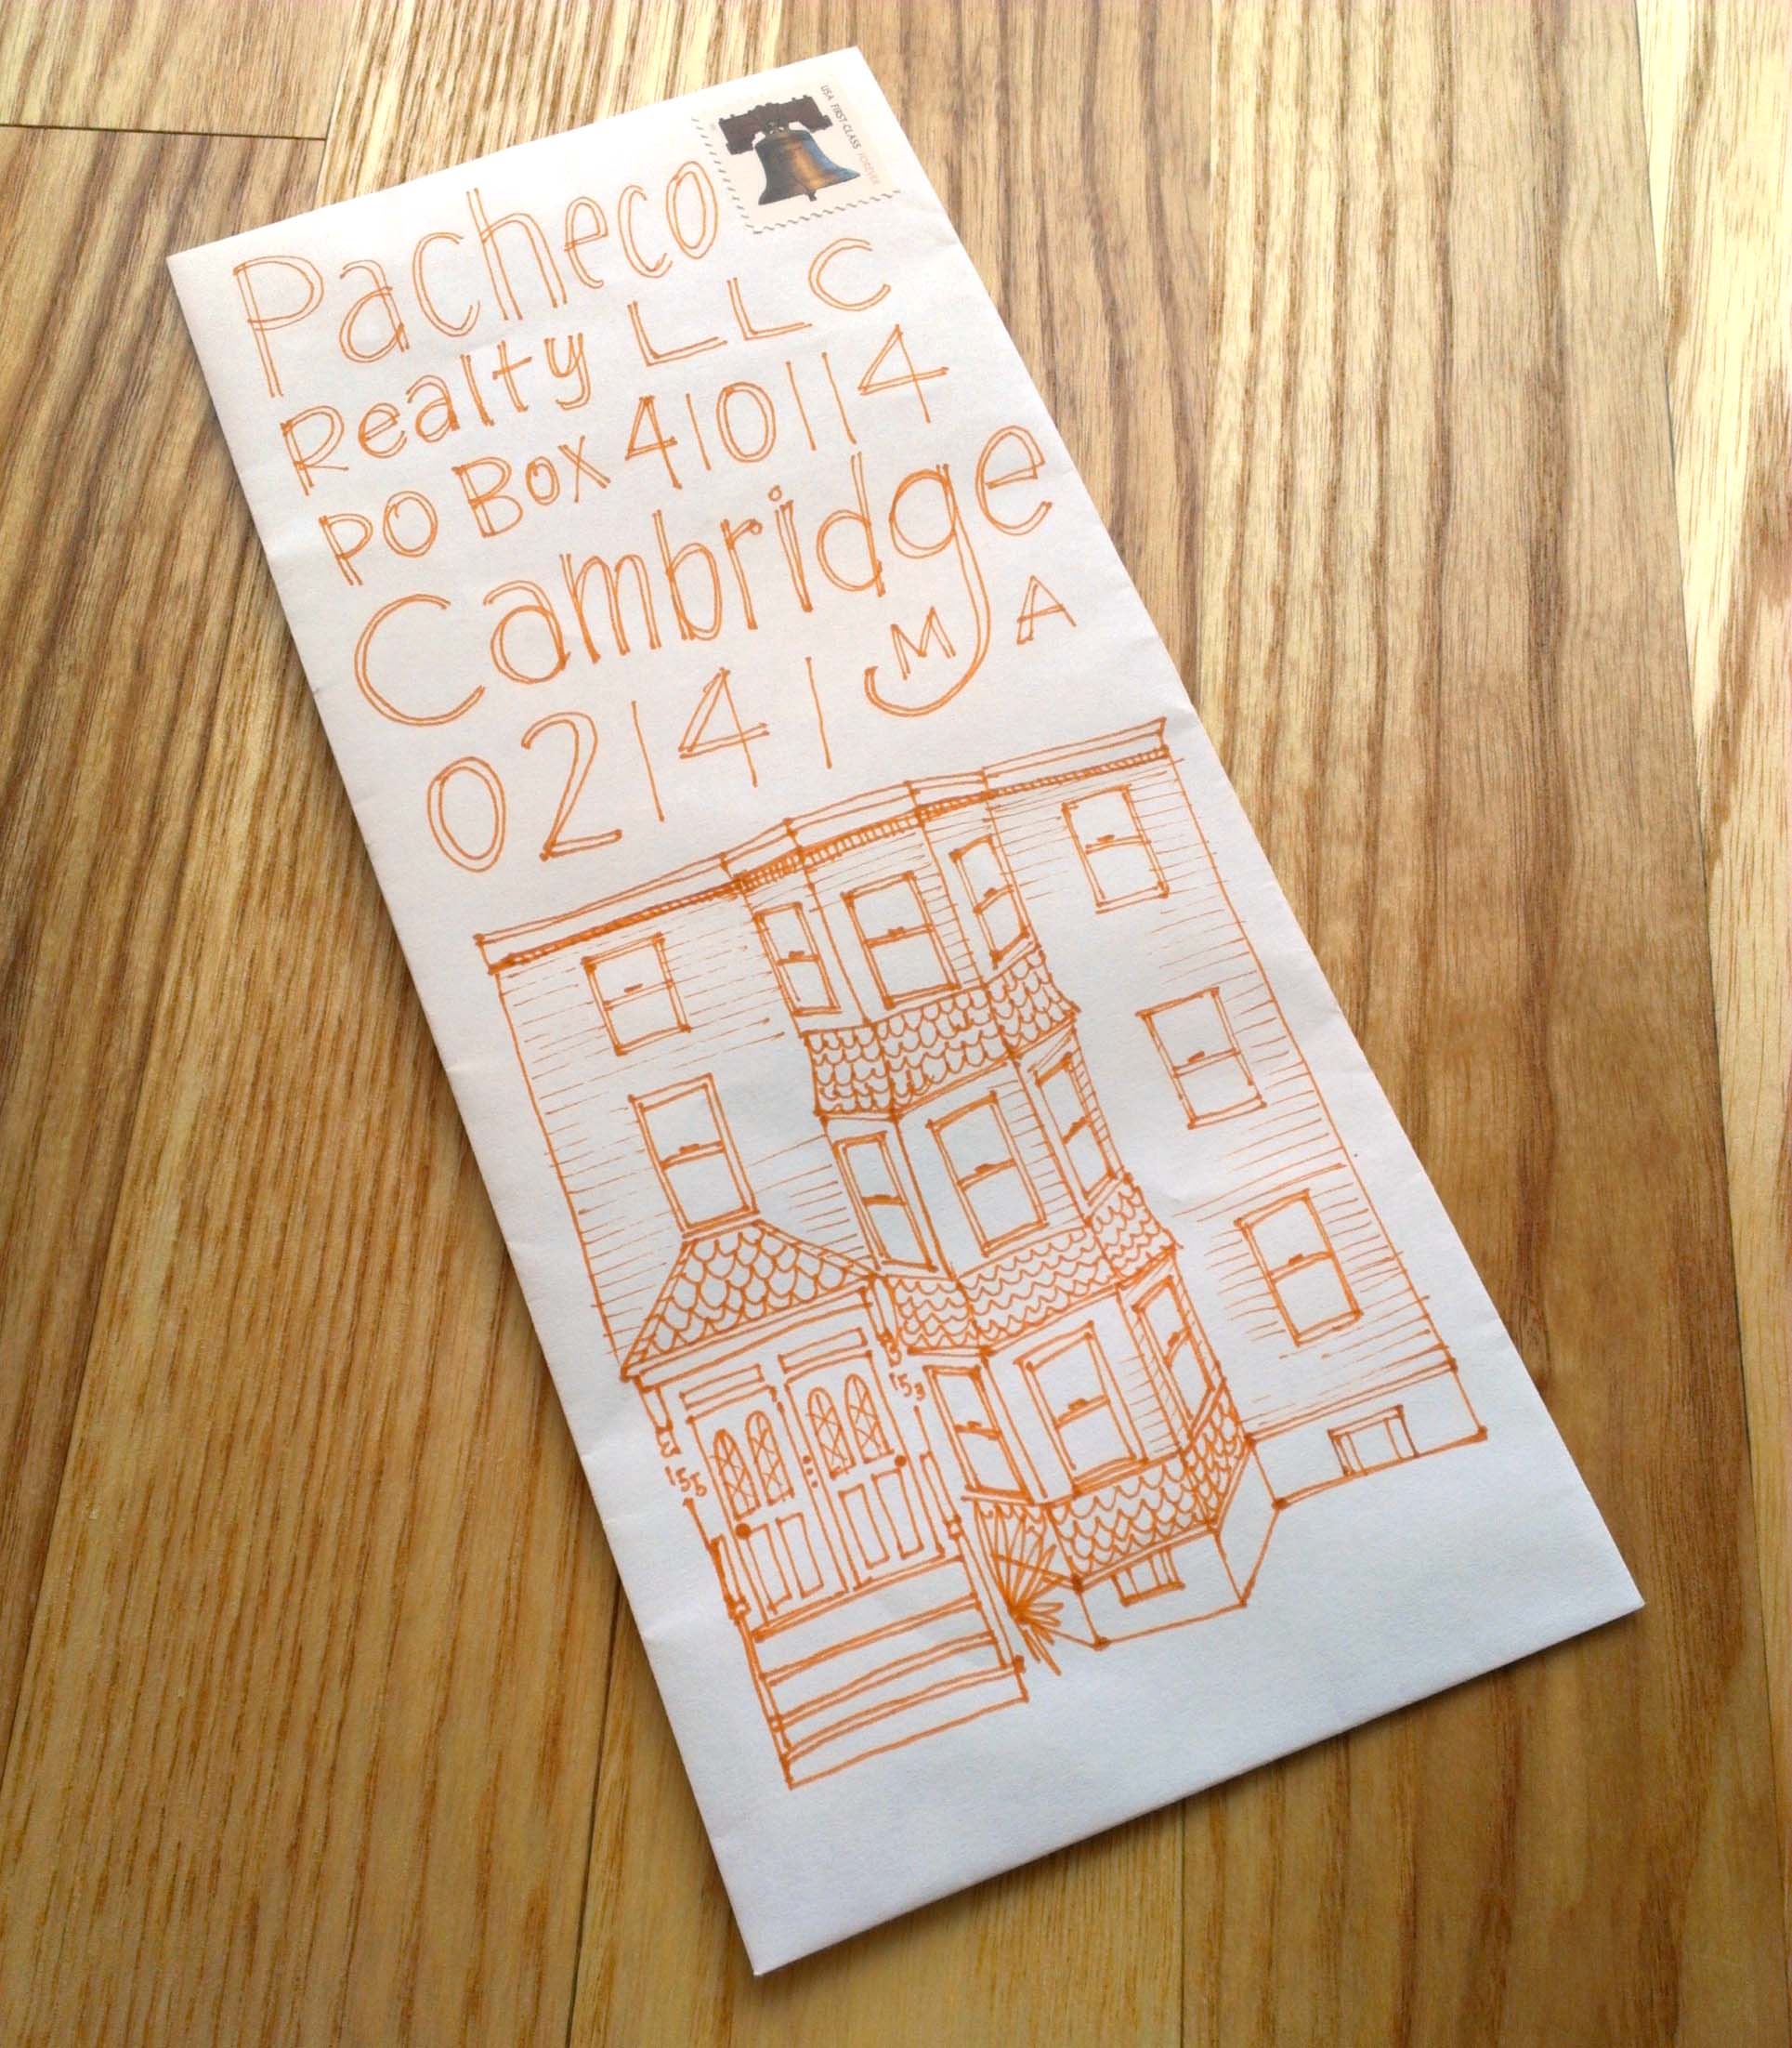 USA FIRST-CLASS FOREVER
Pacheco
Realty LLC
PO Box 410114
Cambridge
MA
02141
153
155